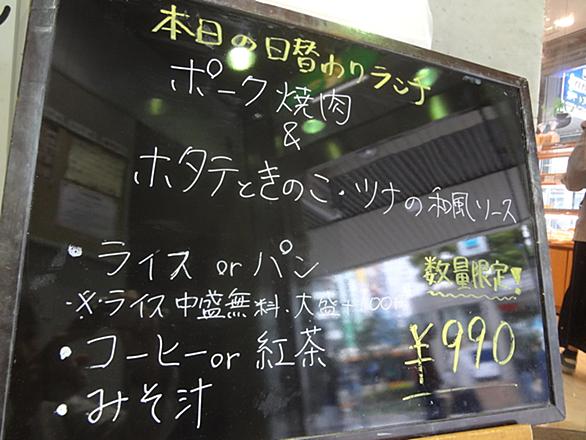 本日の日替わりランチ
ポーク焼肉
&
ホタテときのこ・ツナの和風ソース
・ライス or パン
・※ライス中盛無料、大盛+100円
数量限定!
・コーヒー or 紅茶
¥990
・みそ汁